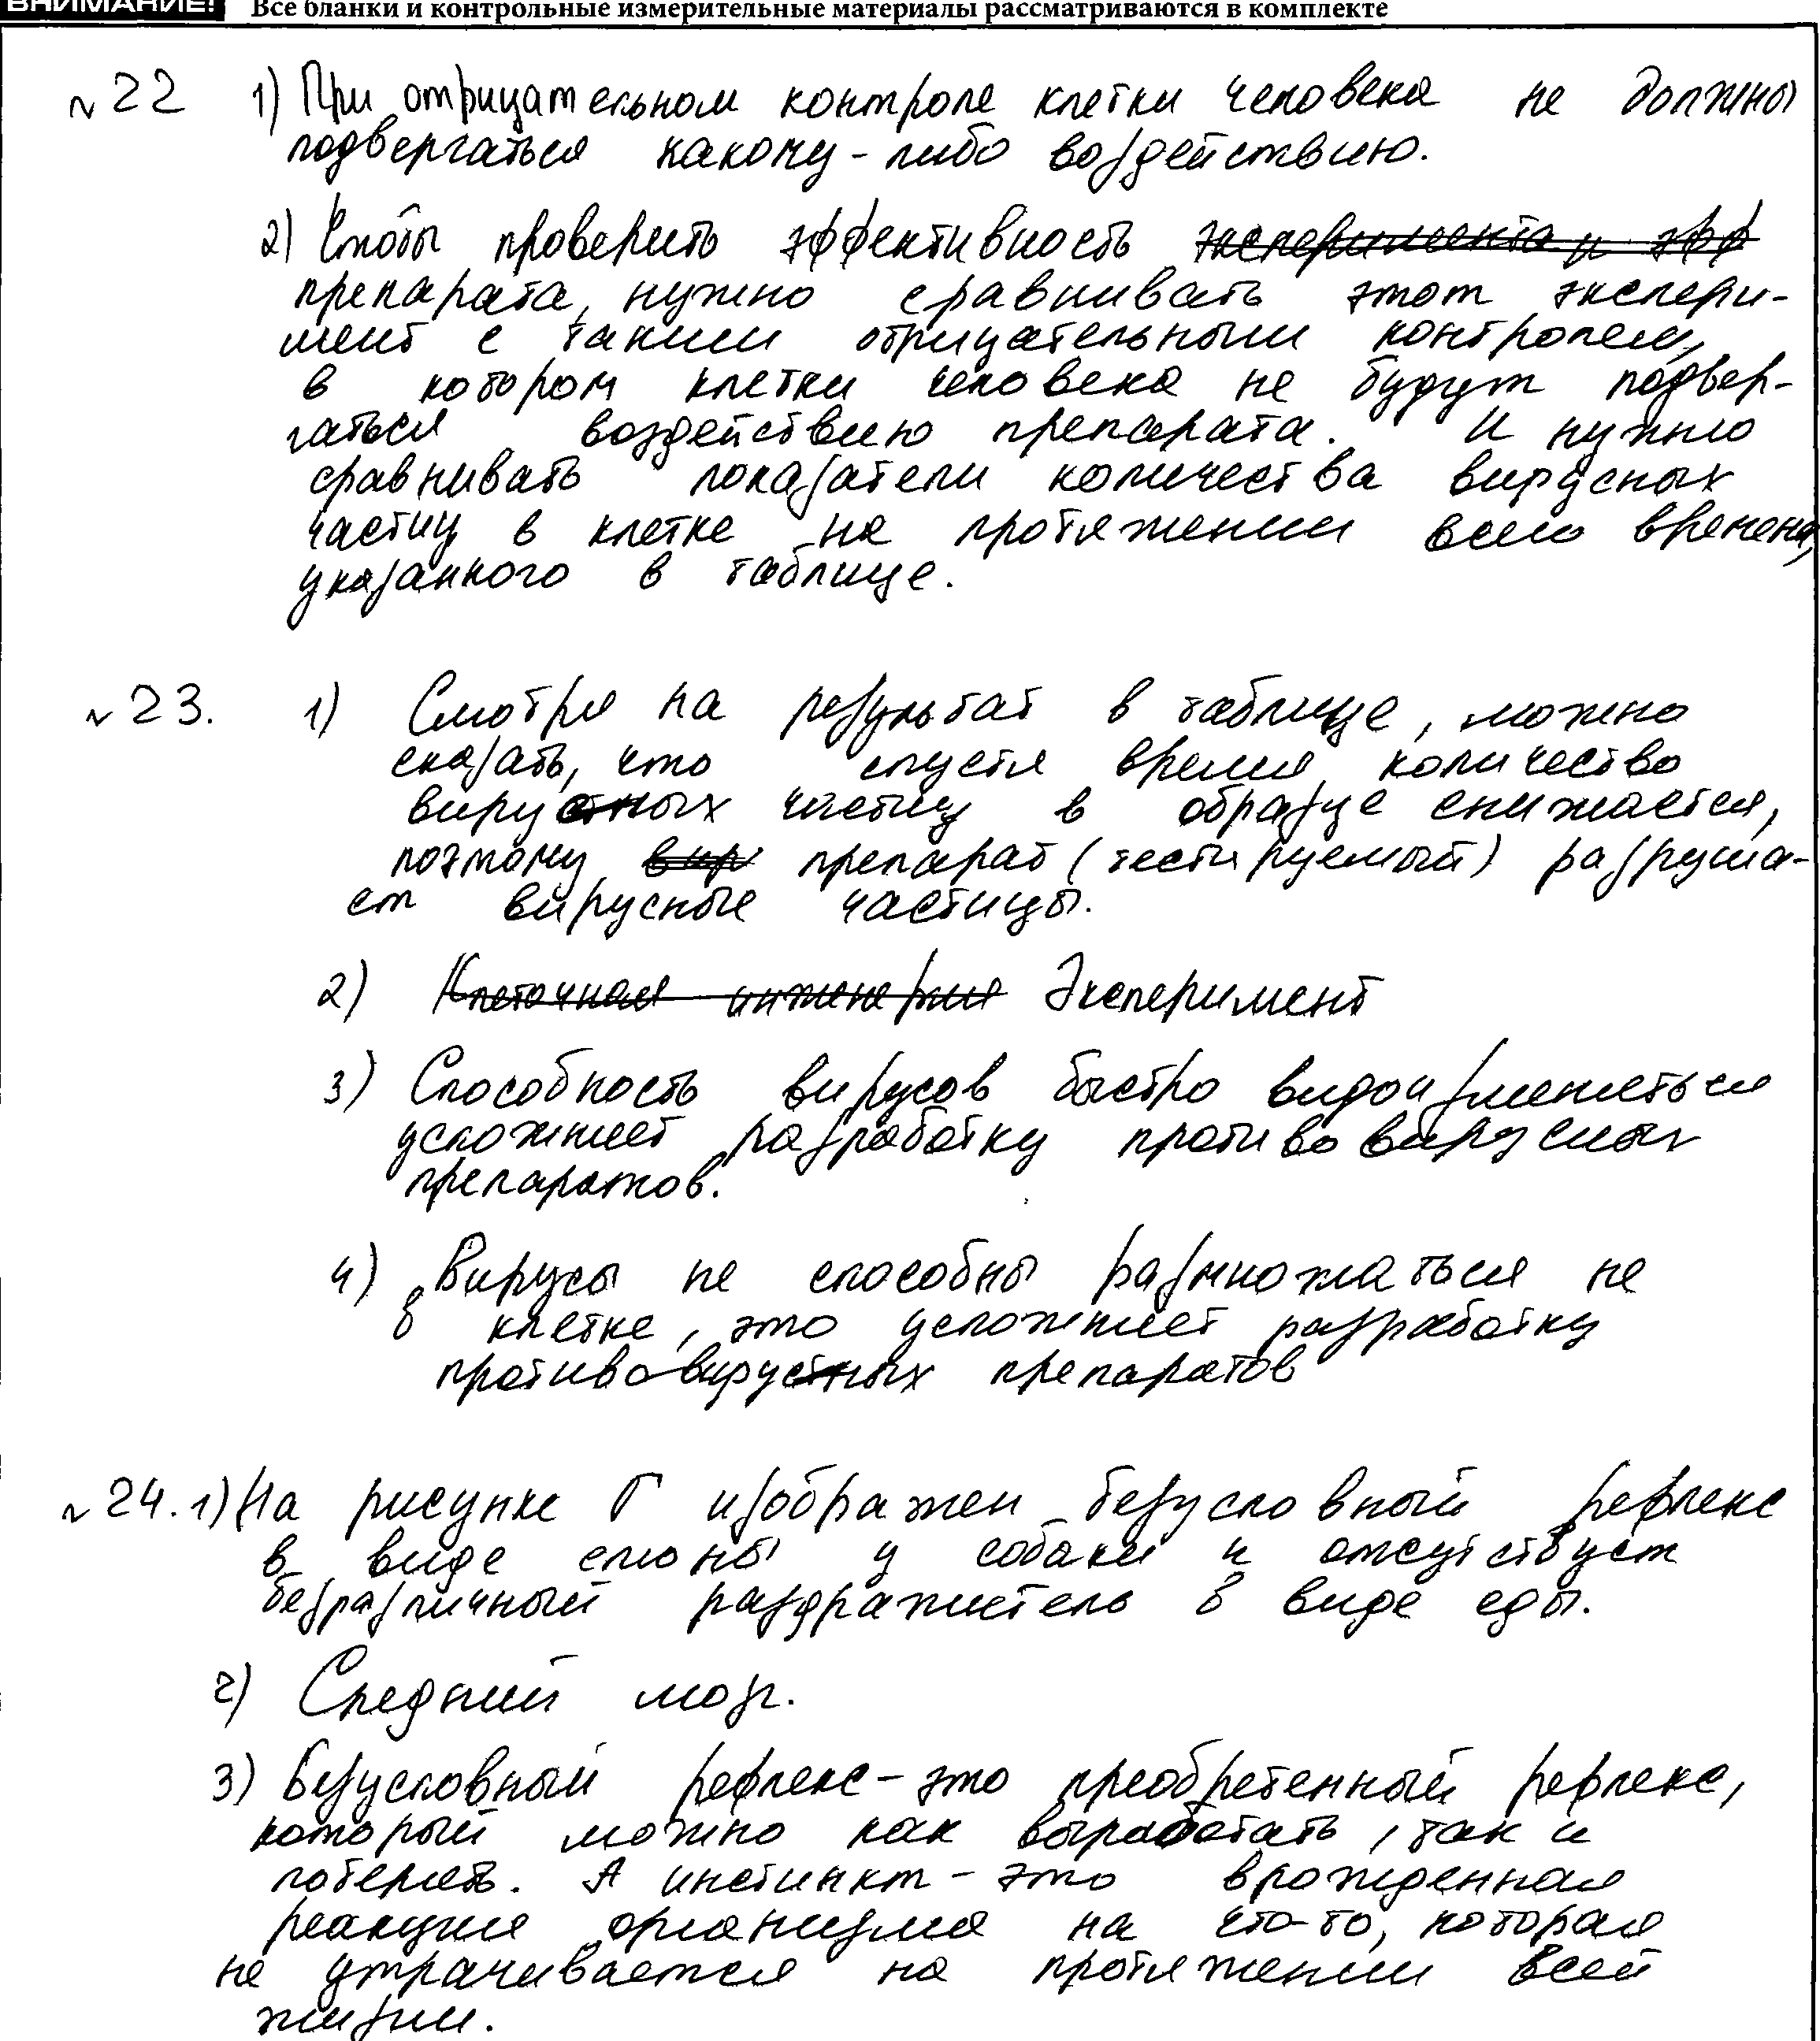 ВНИМАНИЕ! Все бланки и контрольные измерительные материалы рассматриваются в комплекте
№22 1) При отрицательном контроле клетки человека не должны
подвергаться какому-либо воздействию.
2) Чтобы проверить эффективность эксперимента и эфф
препарата, нужно сравнивать этот экспери-
мент с таким отрицательным контролем,
в котором клетки человека не будут подвер-
гаться воздействию препарата. И нужно
сравнивать показатели количества вирусных
частиц в клетке на протяжении всего времени,
указанного в таблице.
№23. 1) Смотря на результат в таблице, можно
сказать, что спустя время количество
вирусных частиц в образце снижается,
поэтому вир препарат (тестируемый) разруша-
ет вирусные частицы.
2) Клеточная инженерия Эксперимент
3) Способность вирусов быстро видоизменяться
усложняет разработку противовирусных
препаратов.
4) Вирусы не способны размножаться не
в клетке, это усложняет разработку
противовирусных препаратов
№24. 1) На рисунке Г изображен безусловный рефлекс
в виде слюны у собаки и отсутствует
безразличный раздражитель в виде еды.
2) Средний мозг.
3) Безусловный рефлекс - это преобретенный рефлекс,
который можно как выработать, так и
потерять. А инстинкт - это врожденная
реакция организма на что-то, которая
не утрачивается на протяжении всей
жизни.